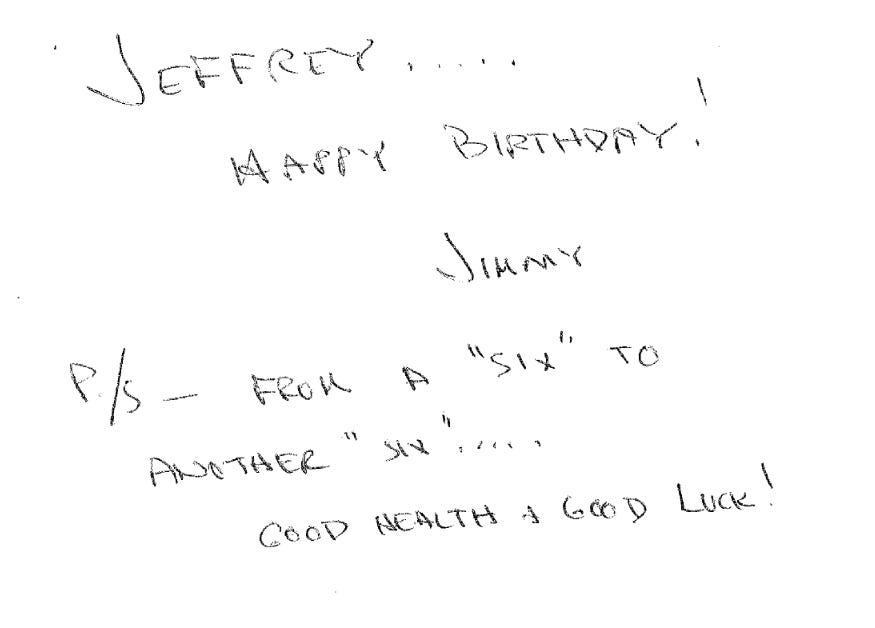 JEFFREY .....
HAPPY BIRTHDAY!
JIMMY
P./S — FROM A "SIX" TO
ANOTHER "SIX" .....
GOOD HEALTH & GOOD LUCK!